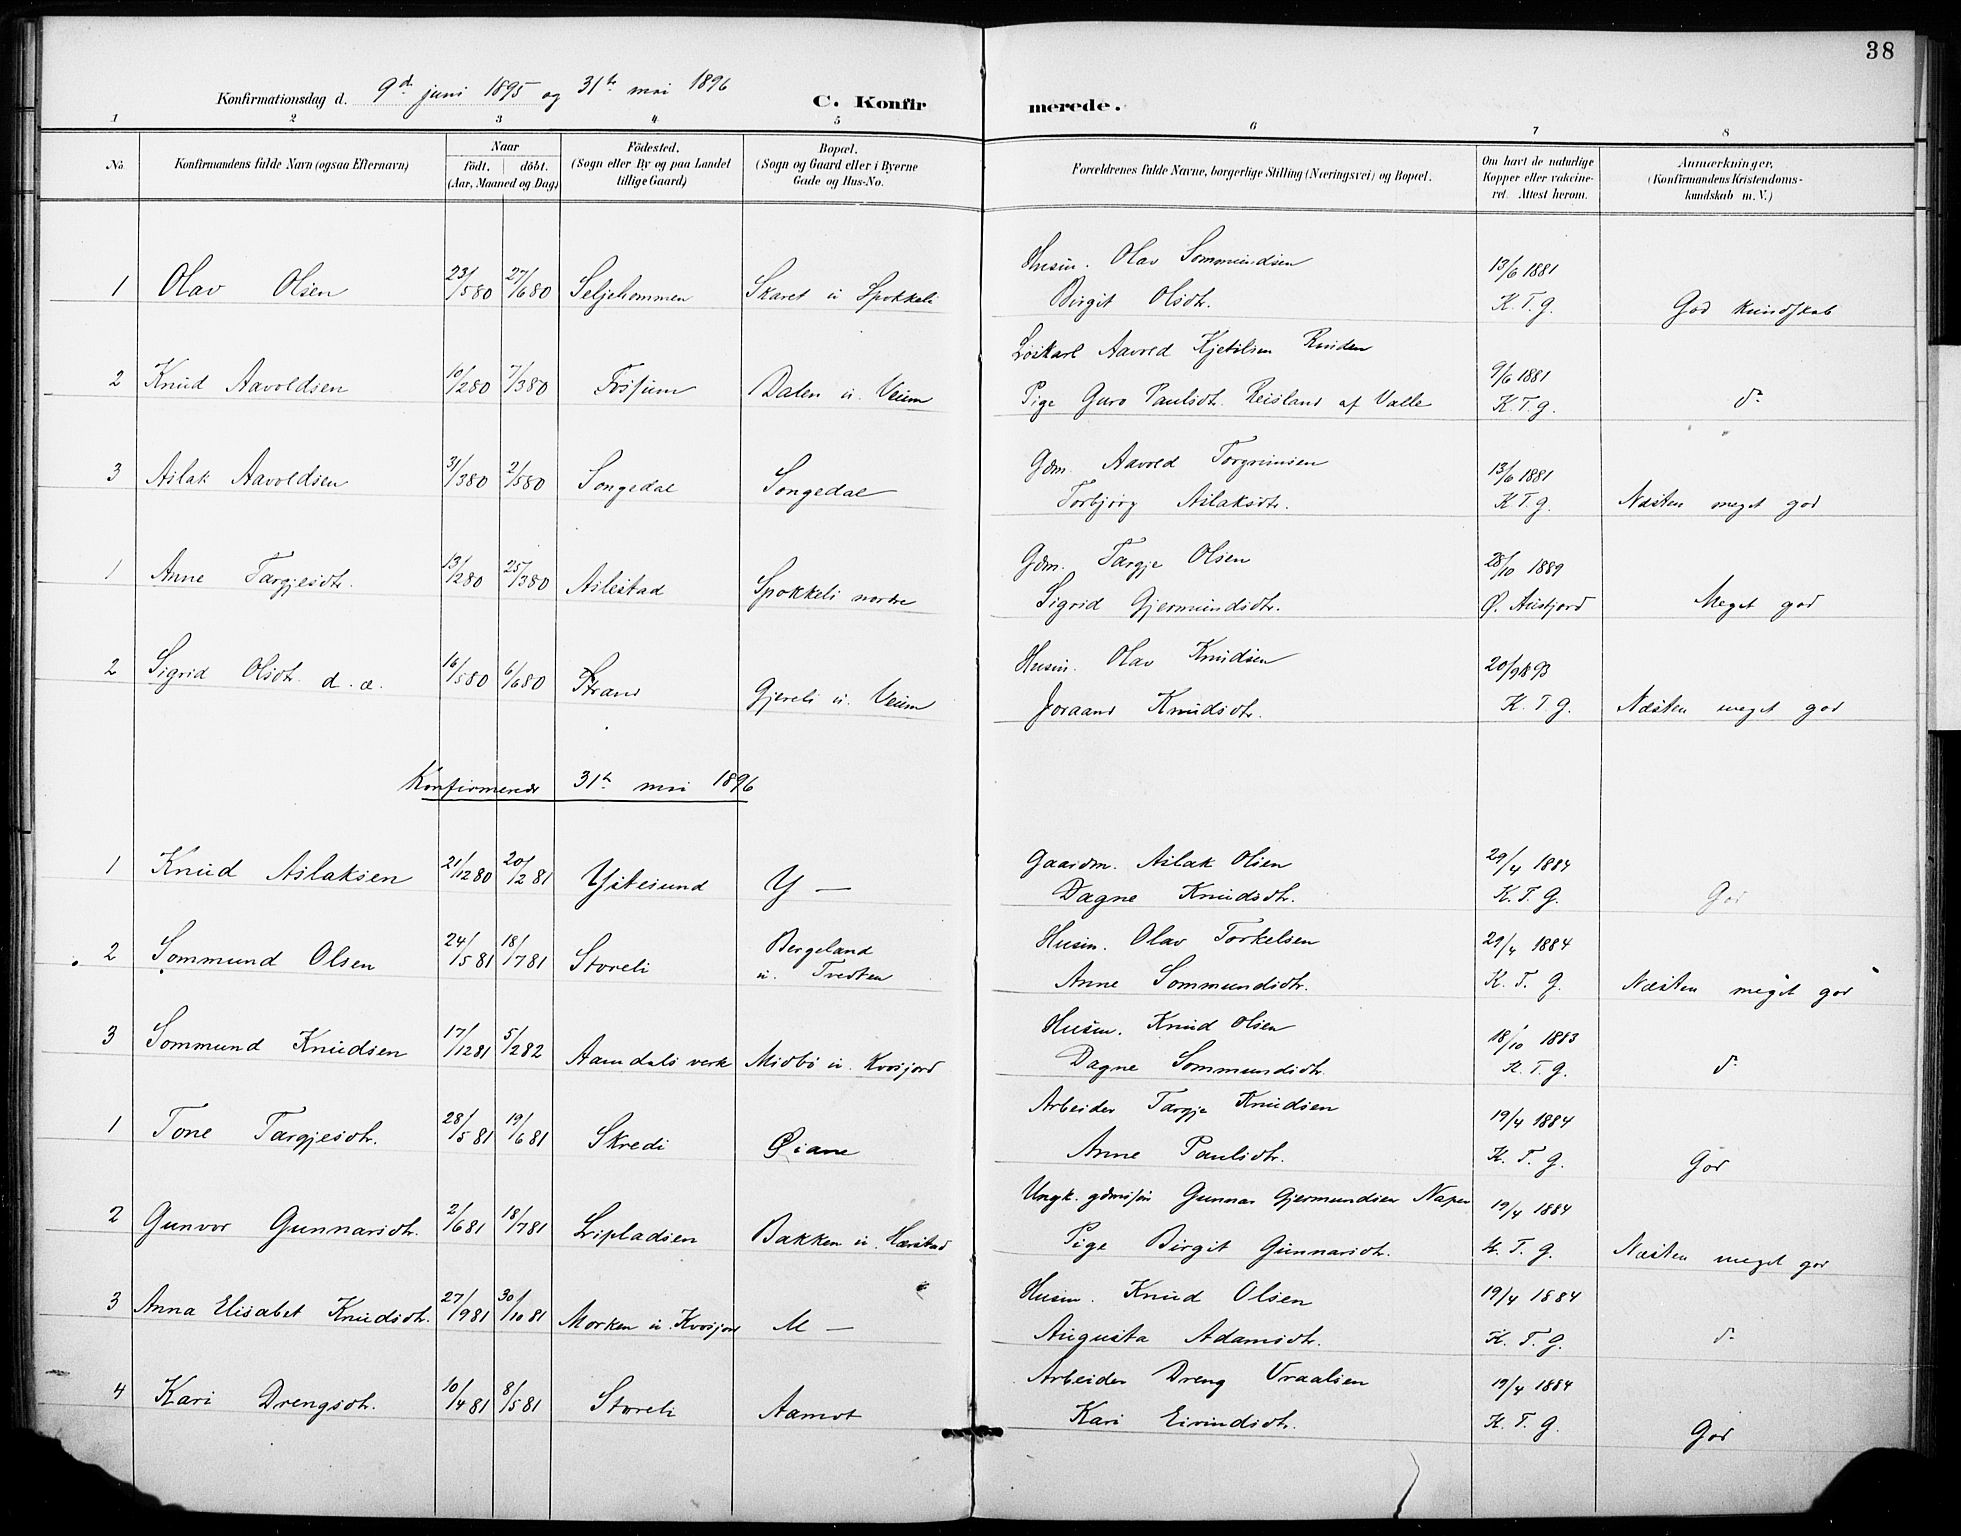 38
Konfirmationsdag d. 9d juni 1895 og 31te mai 1896 C. Konfir merede.
1 2 3 4 5 6 7 8
No. Konfirmandens fulde Navn (ogsaa Efternavn) Naar født. døbt. (Aar, Maaned og Dag) Fødested. (Sogn eller By og paa Landet tillige Gaard) Bopæl. (Sogn og Gaard eller i Byerne Gade og Hus-No. Forældrenes fulde Navne, borgerlige Stilling (Næringsvei) og Bopæl. Om havt de naturlige Kopper eller vakcineret. Attest herom. Anmærkninger, (Konfirmandens Kristendomskundskab m. V.)
Husm. Olav Sommundsen 13/6 1881
1 Olav Olsen 23/5 80 27/6 80 Seljehommen Skaret u Spokkeli Birgit Olsdtr. K. T. G. God kundskab
Løskarl Aavold Kjetilsen 9/6 1881
2 Knud Aavoldsen 10/2 80 7/3 80 Fossum Dalen u. Veum Pige Guro Paulsdtr. Reisland af Valle K. T. G. do
Gdm. Aavold Torgrimsen 13/6 1881
3 Aslak Aavoldsen 31/3 80 2/5 80 Songedal Songedal Torbjørg Aslaksdtr. K T G. Næsten meget god
Gdm. Targje Olsen 28/10 1889
1 Anne Targjesdtr. 13/2 80 25/3 80 Aslestad Spokkeli nordre Sigrid Gjermundsdtr. Ø. Austjord Meget god
Husm. Olav Knudsen 20/9 93
2 Sigrid Olsdtr. d. æ. 16/5 80 6/6 80 Strand Gjereli u. Veum Joraand Knudsdtr. K. T G. Næsten meget god
Konfirmerede 31te mai 1896
Gaardm. Aslak Olsen 29/4 1884
1 Knud Aslaksen 21/12 80 20/2 81 Ytresund Y — Dagne Knudsdtr. K. T. G. God
Husm. Olav Torkelsen 29/4 1884
2 Sommund Olsen 24/5 81 18/7 81 Storeli Bergeland u. Tvedten Anne Sommundsdtr. K. T. G. Næsten meget god
Husm. Knud Olsen 18/10 1883
3 Sommund Knudsen 17/12 81 5/2 82 Aamdals verk Midbø u. Kvosjord Dagne Sommundsdtr. K. T. G. do
Arbeider Targje Knudsen 19/4 1884
1 Tone Targjesdtr. 28/5 81 19/6 81 Skredi Øiane Anne Paulsdtr. K. T. G. God
Ungk. gdmssøn Gunnar Gjermundsen Naper 19/4 1884
2 Gunvor Gunnarsdtr. 2/6 81 18/7 81 Lripladsen Bakken u. Hærstad Pige Birgit Gunnarsdtr. K. T. G. Næsten meget god
Husm. Knud Olsen 19/4 1884
3 Anna Elisabet Knudsdtr. 27/9 81 30/10 81 Morken u. Kvosjord M — Augusta Adamsdtr. K. T. G. do
Arbeider Dreng Vraalsen 19/4 1884
4 Kari Drengsdtr. 10/4 81 8/5 81 Storeli Aamot Kari Eivindsdtr. K. T. G. God